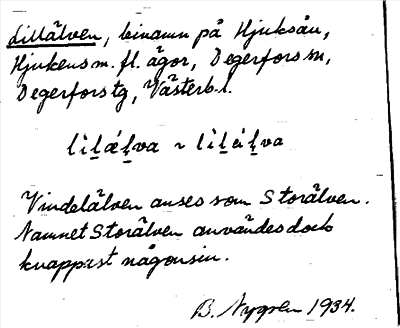 Lillälven, binamn på Hjuksån,
Hjukens m. fl. ägor, Degerfors sn,
Degerfors tg, Västerb. l.
lìḻǽḻva ~ lìḻéḻva
Vindelälven anses som Storälven.
Namnet Storälven användes dock
knappast någonsin.
B. Nygren 1934.